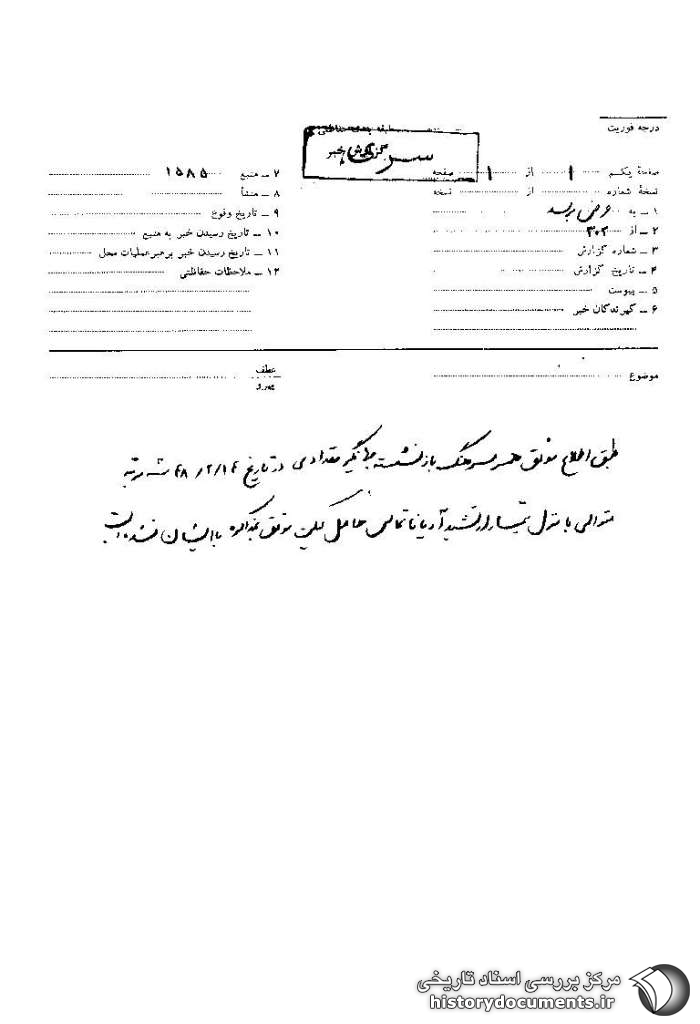 درجه فوریت
طبقه بندی حفاظتی
سری
گزارش خبر
صفحهٔ یکم ۱ از ۱ صفحه
نسخهٔ شماره از نسخه
۱ ــ به عرض برسد
۲ ــ از ۳۰۲
۳ ــ شماره گزارش
۴ ــ تاریخ گزارش
۵ ــ پیوست
۶ ــ گیرندگان خبر
۷ ــ منبع ۱۵۸۵
۸ ــ منشأ
۹ ــ تاریخ وقوع
۱۰ ــ تاریخ رسیدن خبر به منبع
۱۱ ــ تاریخ رسیدن خبر برهبر عملیات محل
۱۲ ــ ملاحظات حفاظتی
موضوع
عطف
پیرو
طبق اطلاع موثق همسر سرهنگ بازنشسته جهانگیر مقدادی در تاریخ ۴۸/۲/۱۴ سه مرتبه
متوالی با منزل تیمسار ارتشبد آریانا تماس حاصل لیکن موفق بمذاکره با ایشان نشده است
مرکز بررسی اسناد تاریخی
historydocuments.ir